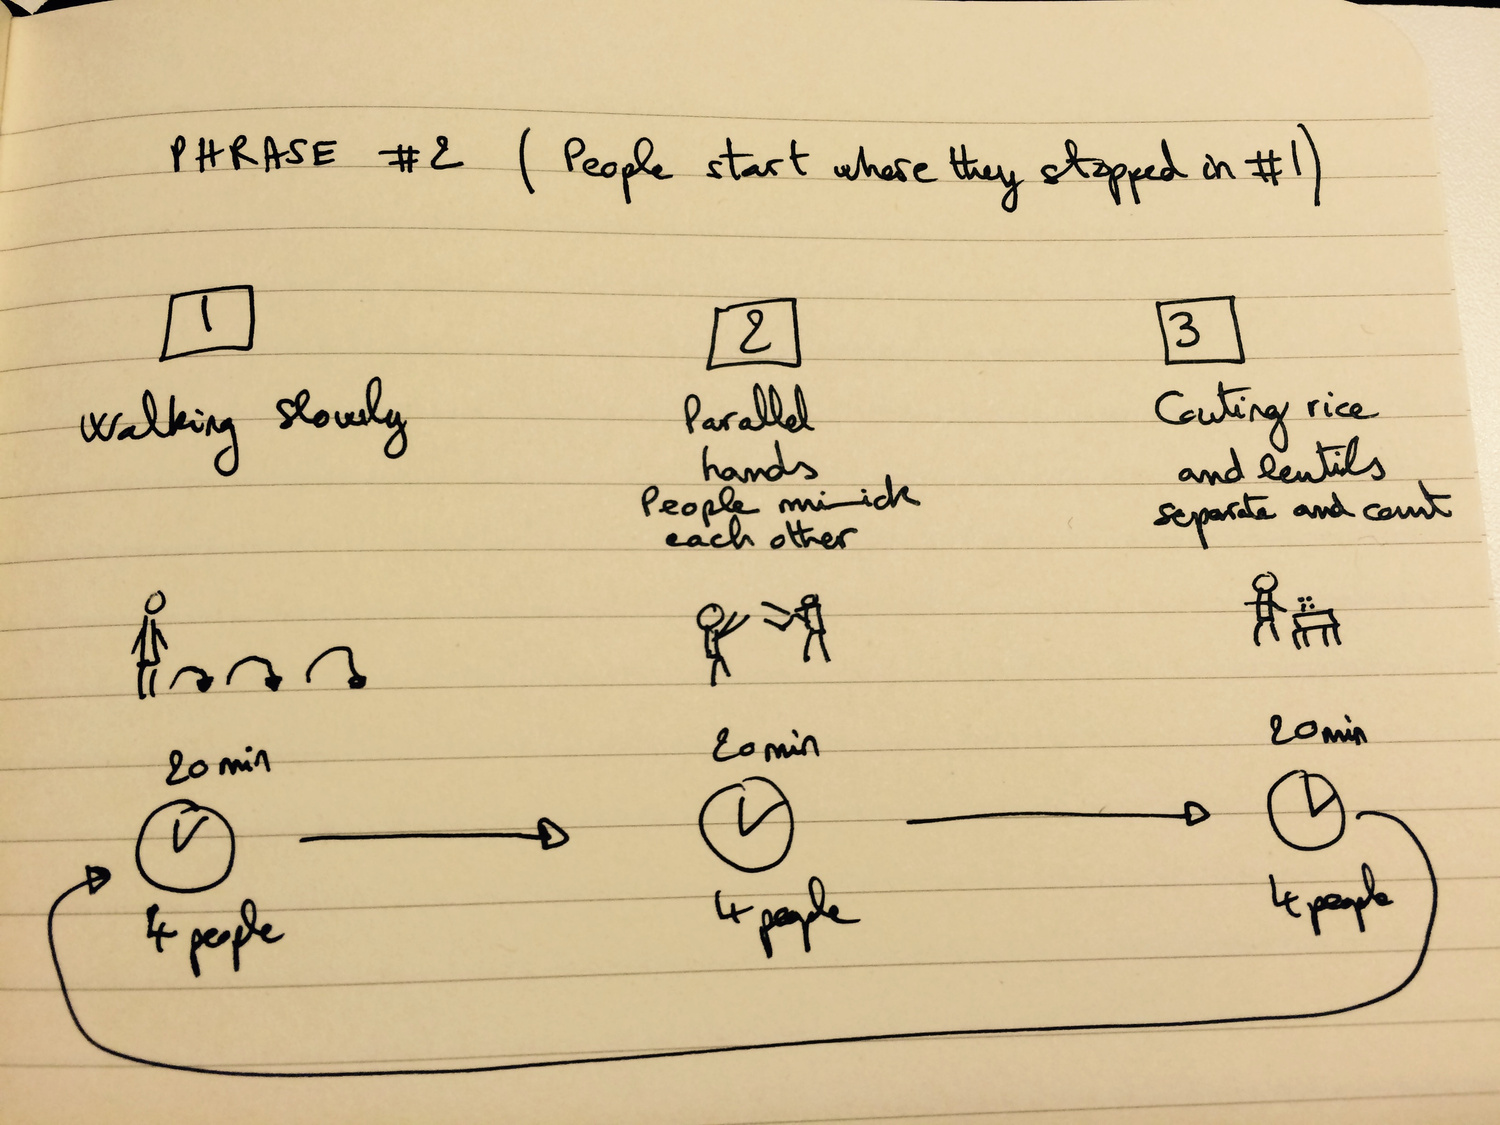 PHRASE #2 (People start where they stopped in #1)
1
2
3
Walking slowly
Parallel
hands
People mimick
each other
Couting rice
and lentils
separate and count
20 min
20 min
20 min
4 people
4 people
4 people